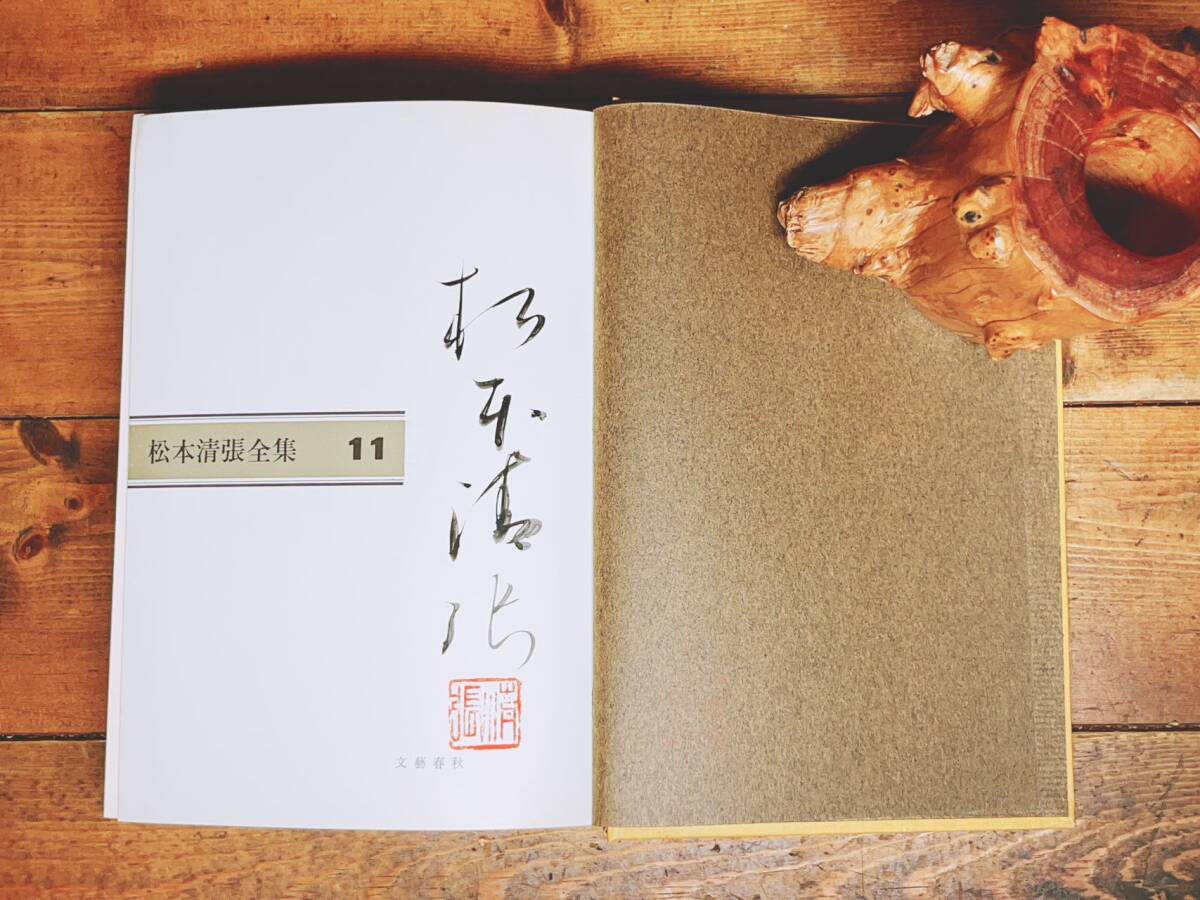 松本清張
清張
松本清張全集 11
文藝春秋